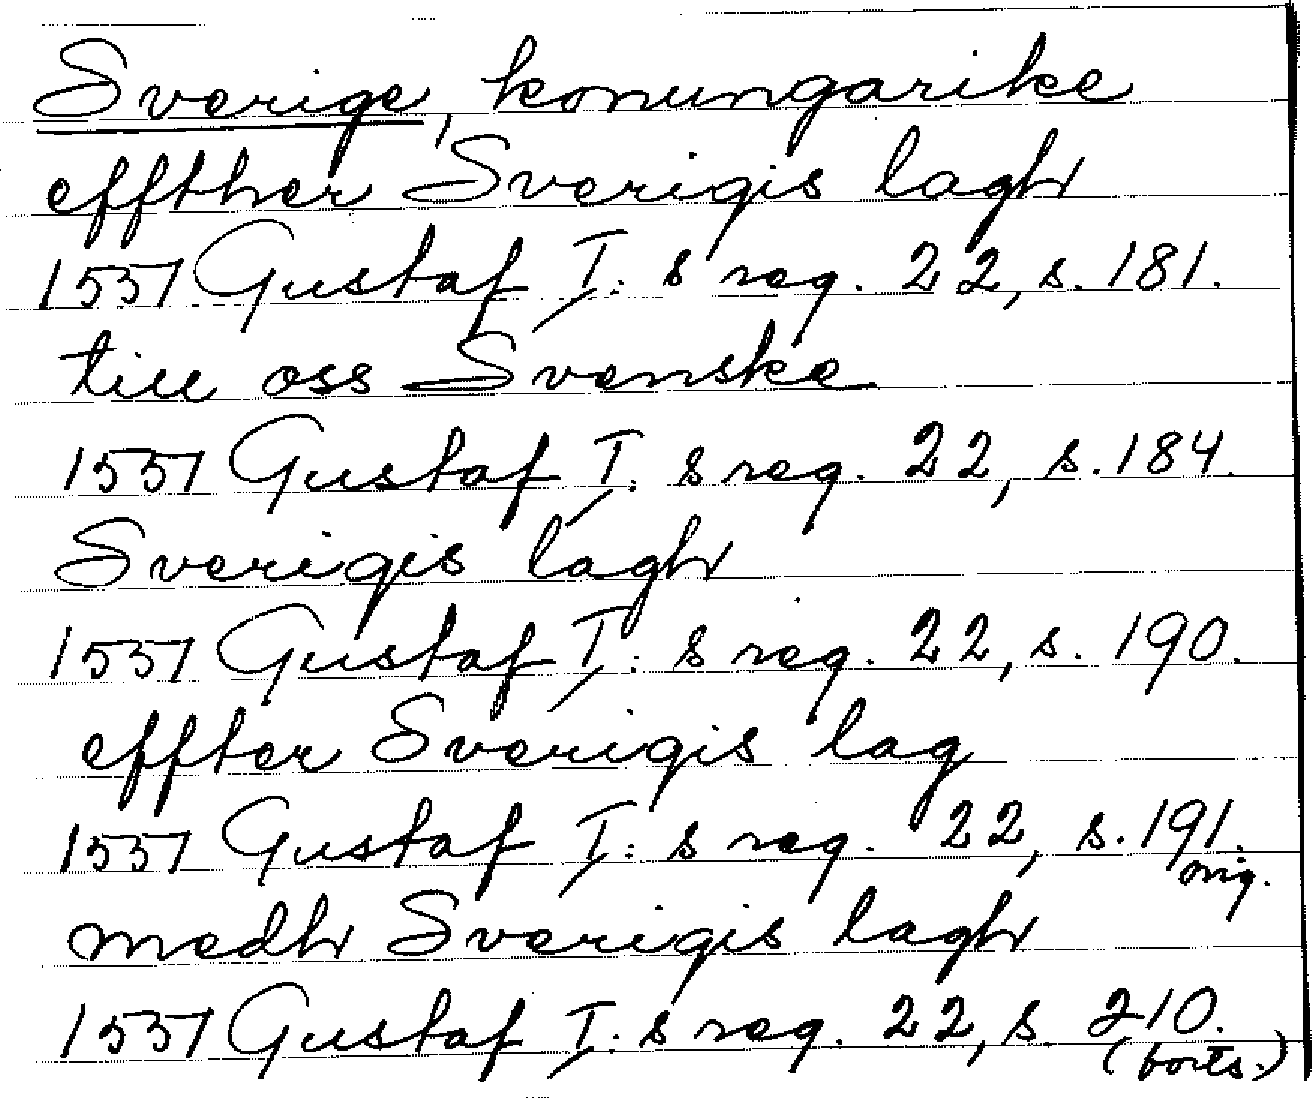 Sverige, konungarike
effther Sverigis lagh
1551 Gustaf I:s reg. 22, s. 181.
till oss Svenske
1551 Gustaf I:s reg. 22, s. 184.
Sverigis lagh
1551 Gustaf I:s reg. 22, s. 190.
effter Sverigis lag
1551 Gustaf I:s reg. 22, s. 191.
orig.
medh Sverigis lagh
1551 Gustaf I:s reg. 22, s. 210.
(forts.)